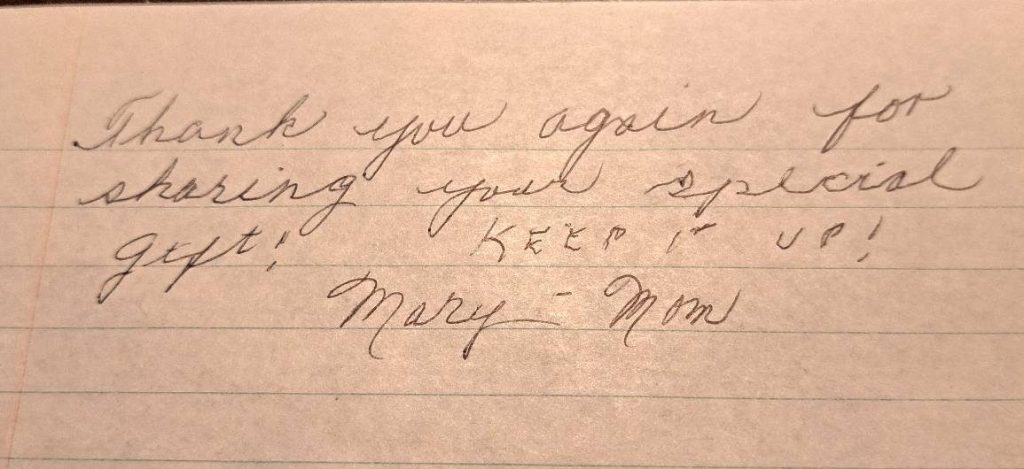 Thank you again for
sharing your special
gift! KEEP IT UP!
Mary - Mom